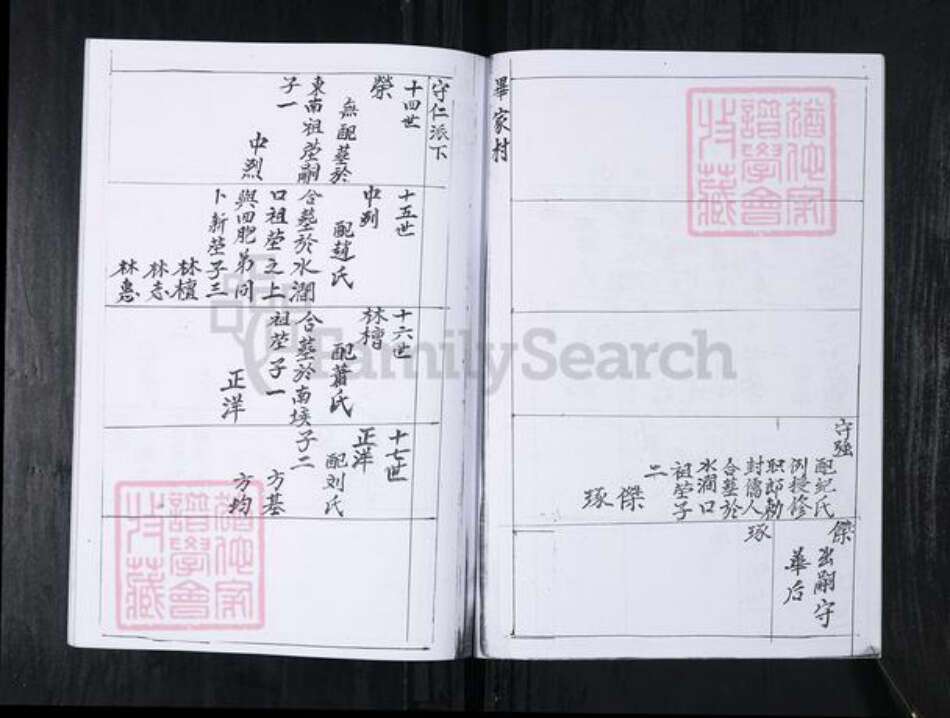 畢家村
守强
配紀氏
例授修
职郎勅
封儒人
合墓於
水澗口
祖塋子
二
傑
琢
傑
出嗣守
華后
琢
守仁派下
十四世
榮
無配墓於
東南祖塋嗣
子一
中烈
十五世
中烈
配趙氏
合墓於水澗
口祖塋之上
與四胞弟同
卜新塋子三
林檀
林志
林惠
十六世
林檀
配蕭氏
合墓於南埃子二
祖塋子一
正洋
十七世
正洋
配刘氏
方基
方均
FamilySearch